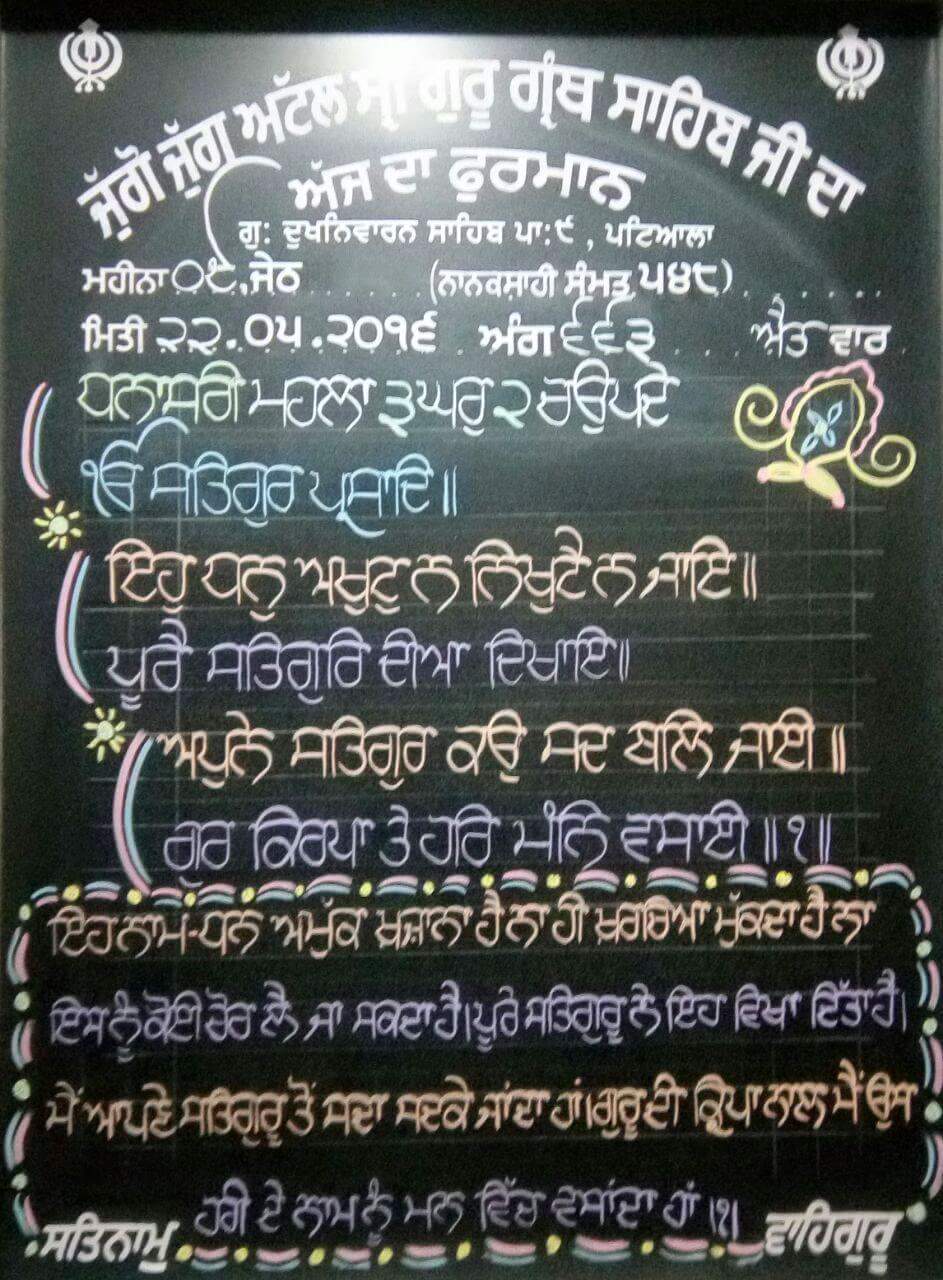 ਜੁੱਗੋ ਜੁੱਗ ਅਟੱਲ ਸ੍ਰੀ ਗੁਰੂ ਗ੍ਰੰਥ ਸਾਹਿਬ ਜੀ ਦਾ
ਅੱਜ ਦਾ ਫੁਰਮਾਨ
ਗੁ: ਦੁਖਨਿਵਾਰਨ ਸਾਹਿਬ ਪਾ:੯ , ਪਟਿਆਲਾ
ਮਹੀਨਾ ੦੯,ਜੇਠ (ਨਾਨਕਸ਼ਾਹੀ ਸੰਮਤ ੫੪੮)
ਮਿਤੀ ੨੨.੦੫.੨੦੧੬ ਅੰਗ ੬੬੩ ਐਤ ਵਾਰ
ਧਨਾਸਰੀ ਮਹਲਾ ੩ ਘਰੁ ੨ ਚਉਪਦੇ
ੴ ਸਤਿਗੁਰ ਪ੍ਰਸਾਦਿ॥
ਇਹੁ ਧਨੁ ਅਖੁਟੁ ਨ ਨਿਖੁਟੈ ਨ ਜਾਇ॥
ਪੂਰੈ ਸਤਿਗੁਰਿ ਦੀਆ ਦਿਖਾਇ॥
ਅਪੁਨੇ ਸਤਿਗੁਰ ਕਉ ਸਦ ਬਲਿ ਜਾਈ ॥
ਗੁਰ ਕਿਰਪਾ ਤੇ ਹਰਿ ਮੰਨਿ ਵਸਾਈ ॥੧॥
ਇਹ ਨਾਮ-ਧਨ ਅਮੁੱਕ ਖ਼ਜ਼ਾਨਾ ਹੈ ਨਾ ਹੀ ਖ਼ਰਚਿਆ ਮੁੱਕਦਾ ਹੈ ਨਾ
ਇਸ ਨੂੰ ਕੋਈ ਚੋਰ ਲੈ ਜਾ ਸਕਦਾ ਹੈ। ਪੂਰੇ ਸਤਿਗੁਰੂ ਨੇ ਇਹ ਵਿਖਾ ਦਿੱਤਾ ਹੈ।
ਮੈਂ ਆਪਣੇ ਸਤਿਗੁਰੂ ਤੋਂ ਸਦਾ ਸਦਕੇ ਜਾਂਦਾ ਹਾਂ। ਗੁਰੂ ਦੀ ਕ੍ਰਿਪਾ ਨਾਲ ਮੈਂ ਉਸ
ਹਰੀ ਦੇ ਨਾਮ ਨੂੰ ਮਨ ਵਿੱਚ ਵਸਾਂਦਾ ਹਾਂ।੧।
ਸਤਿਨਾਮੁ ਵਾਹਿਗੁਰੂ